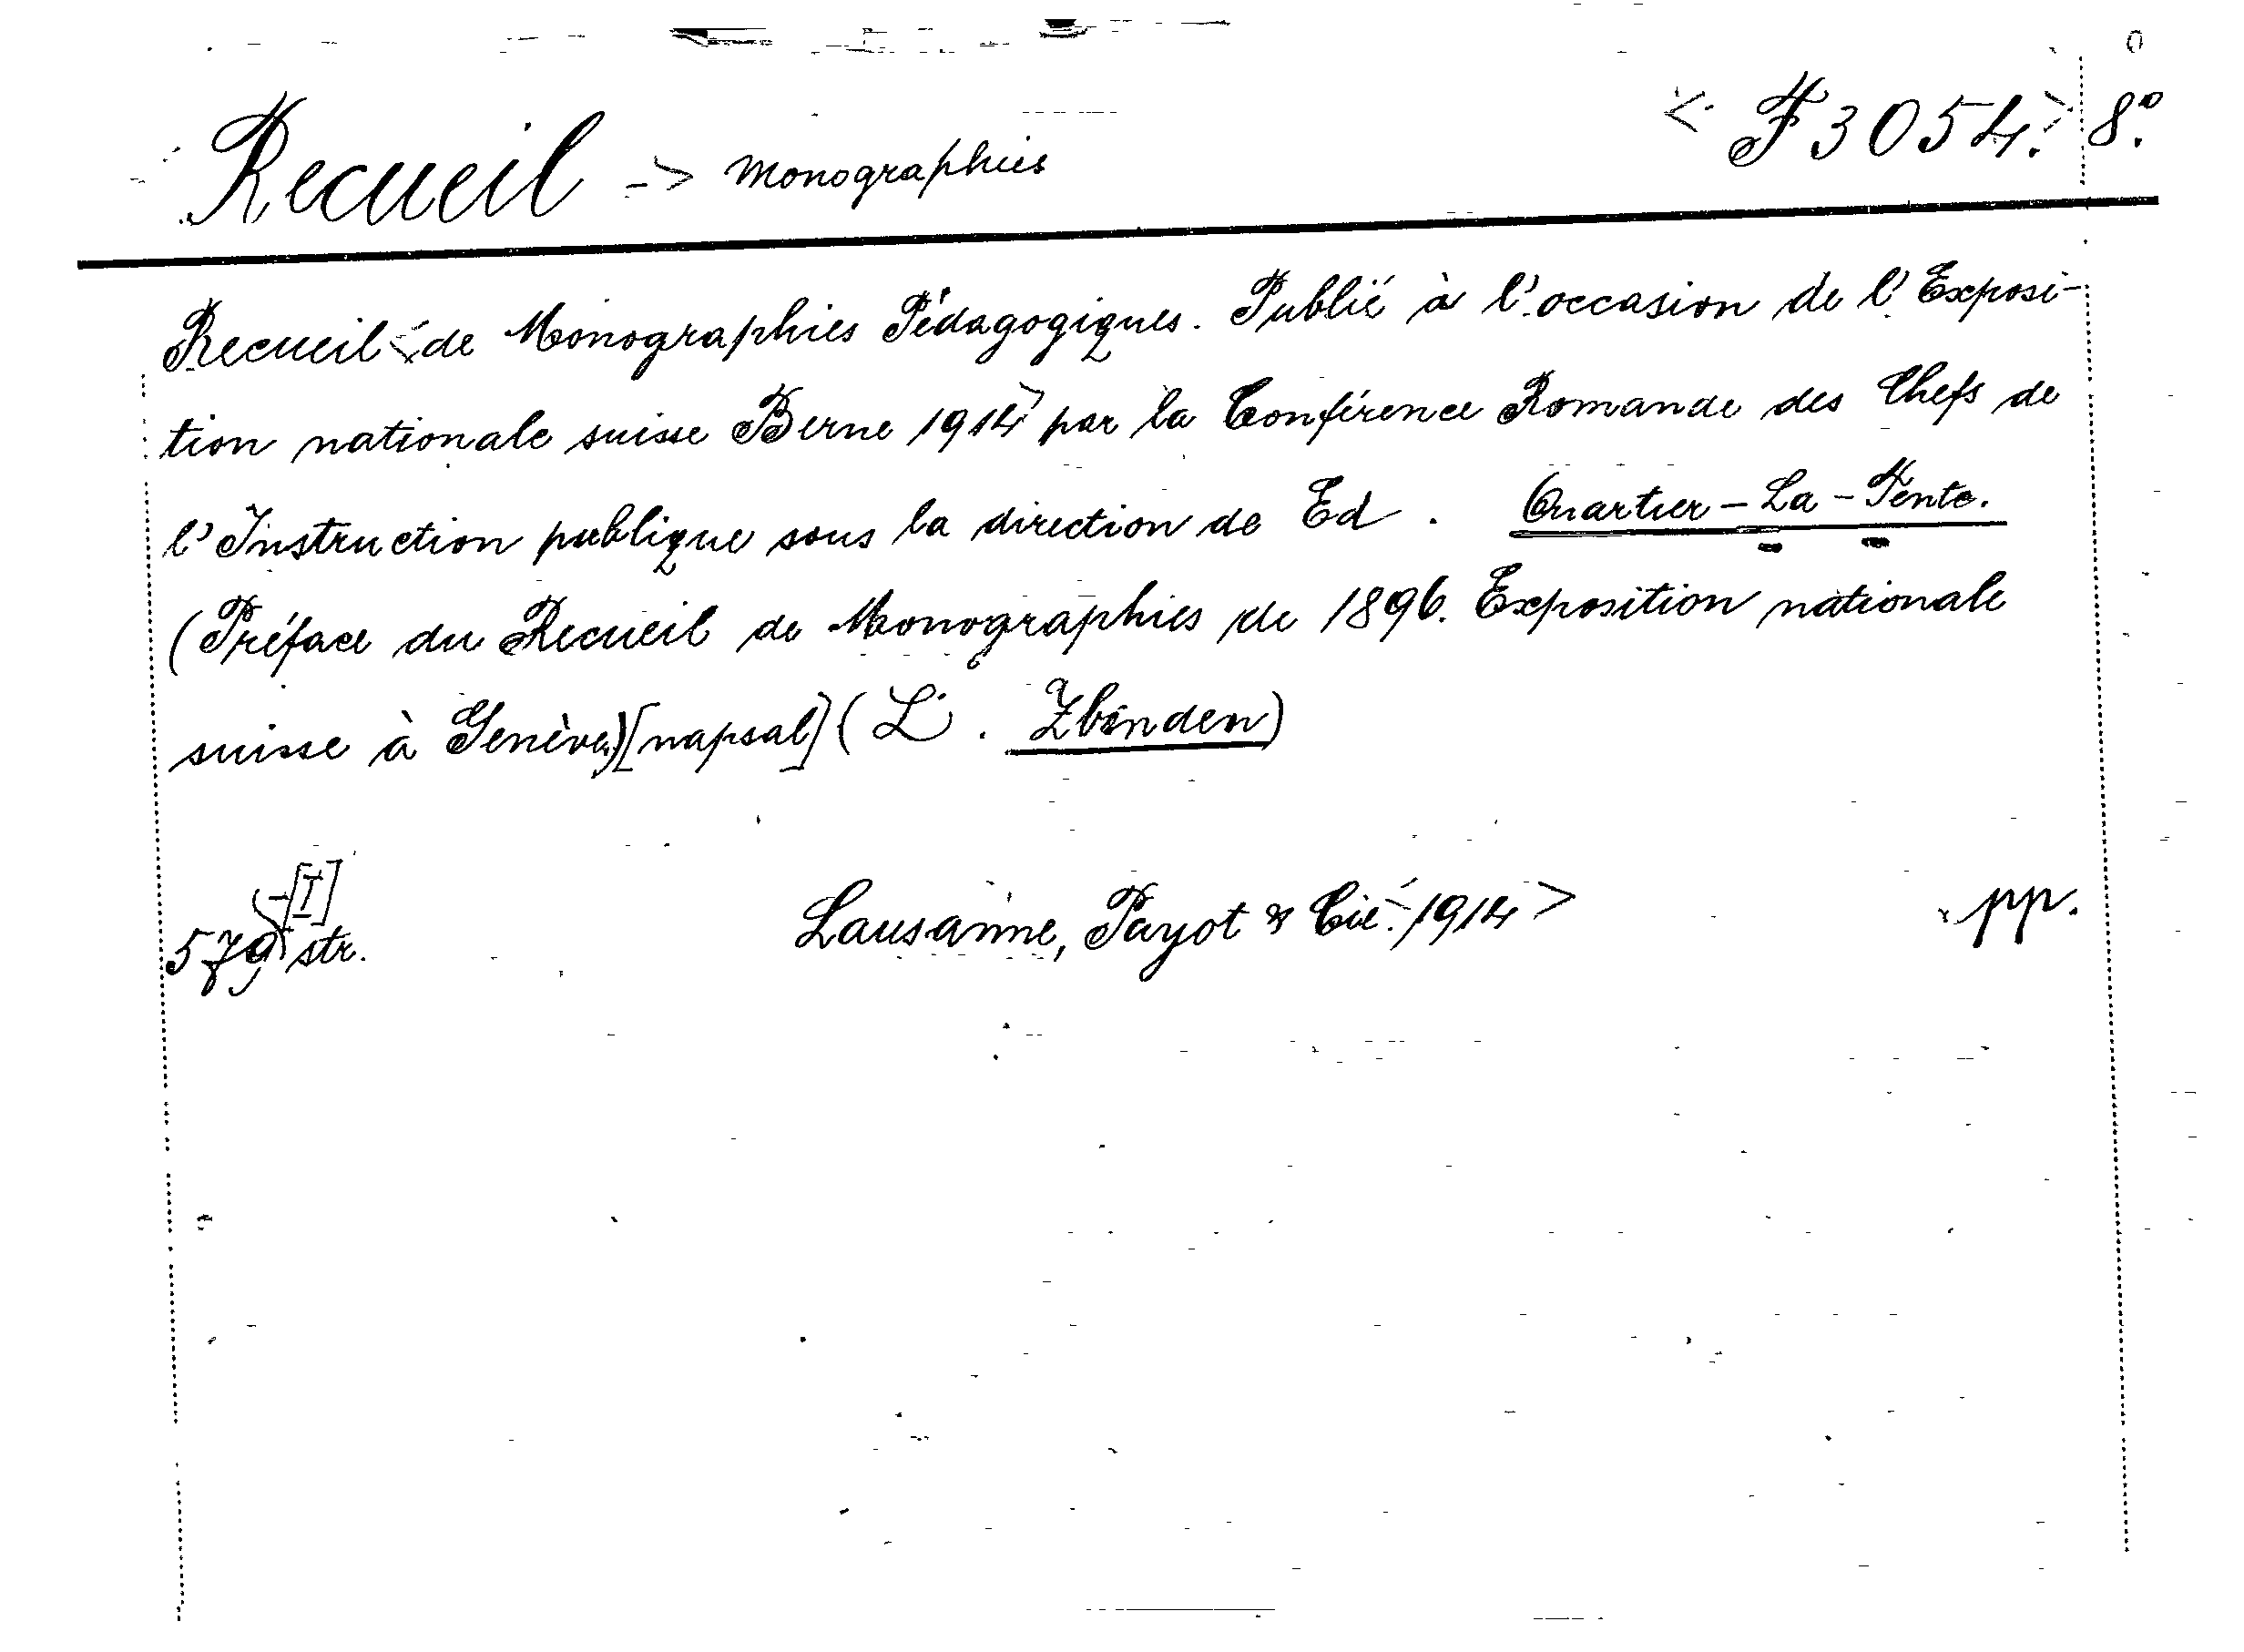 Recueil -> Monographies <F 3054.> 8.°
Recueil <de Monographies Pédagogiques. Publié à l'occasion de l'Exposi-
tion nationale suisse Berne 1914> par la Conférence Romande des Chefs de
l'Instruction publique sous la direction de Ed. Quartier-La-Tente.
(Préface du Recueil de Monographies de 1896. Exposition nationale
suisse à Genève)[napsal](L. Zbinden)
579-[I] str. Lausanne, Payot & Cie. 1914> pp.